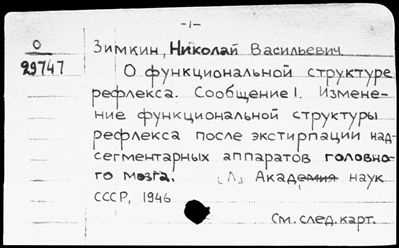 -1-
О
29747
Зимкин, Николай Васильевич
О функциональной структуре
рефлекса. Сообщение 1. Измене-
ние функциональной структуры
рефлекса после экстирпации над-
сегментарных аппаратов головно-
го мозга. [Л] Академия наук
СССР, 1946
См. след. карт.